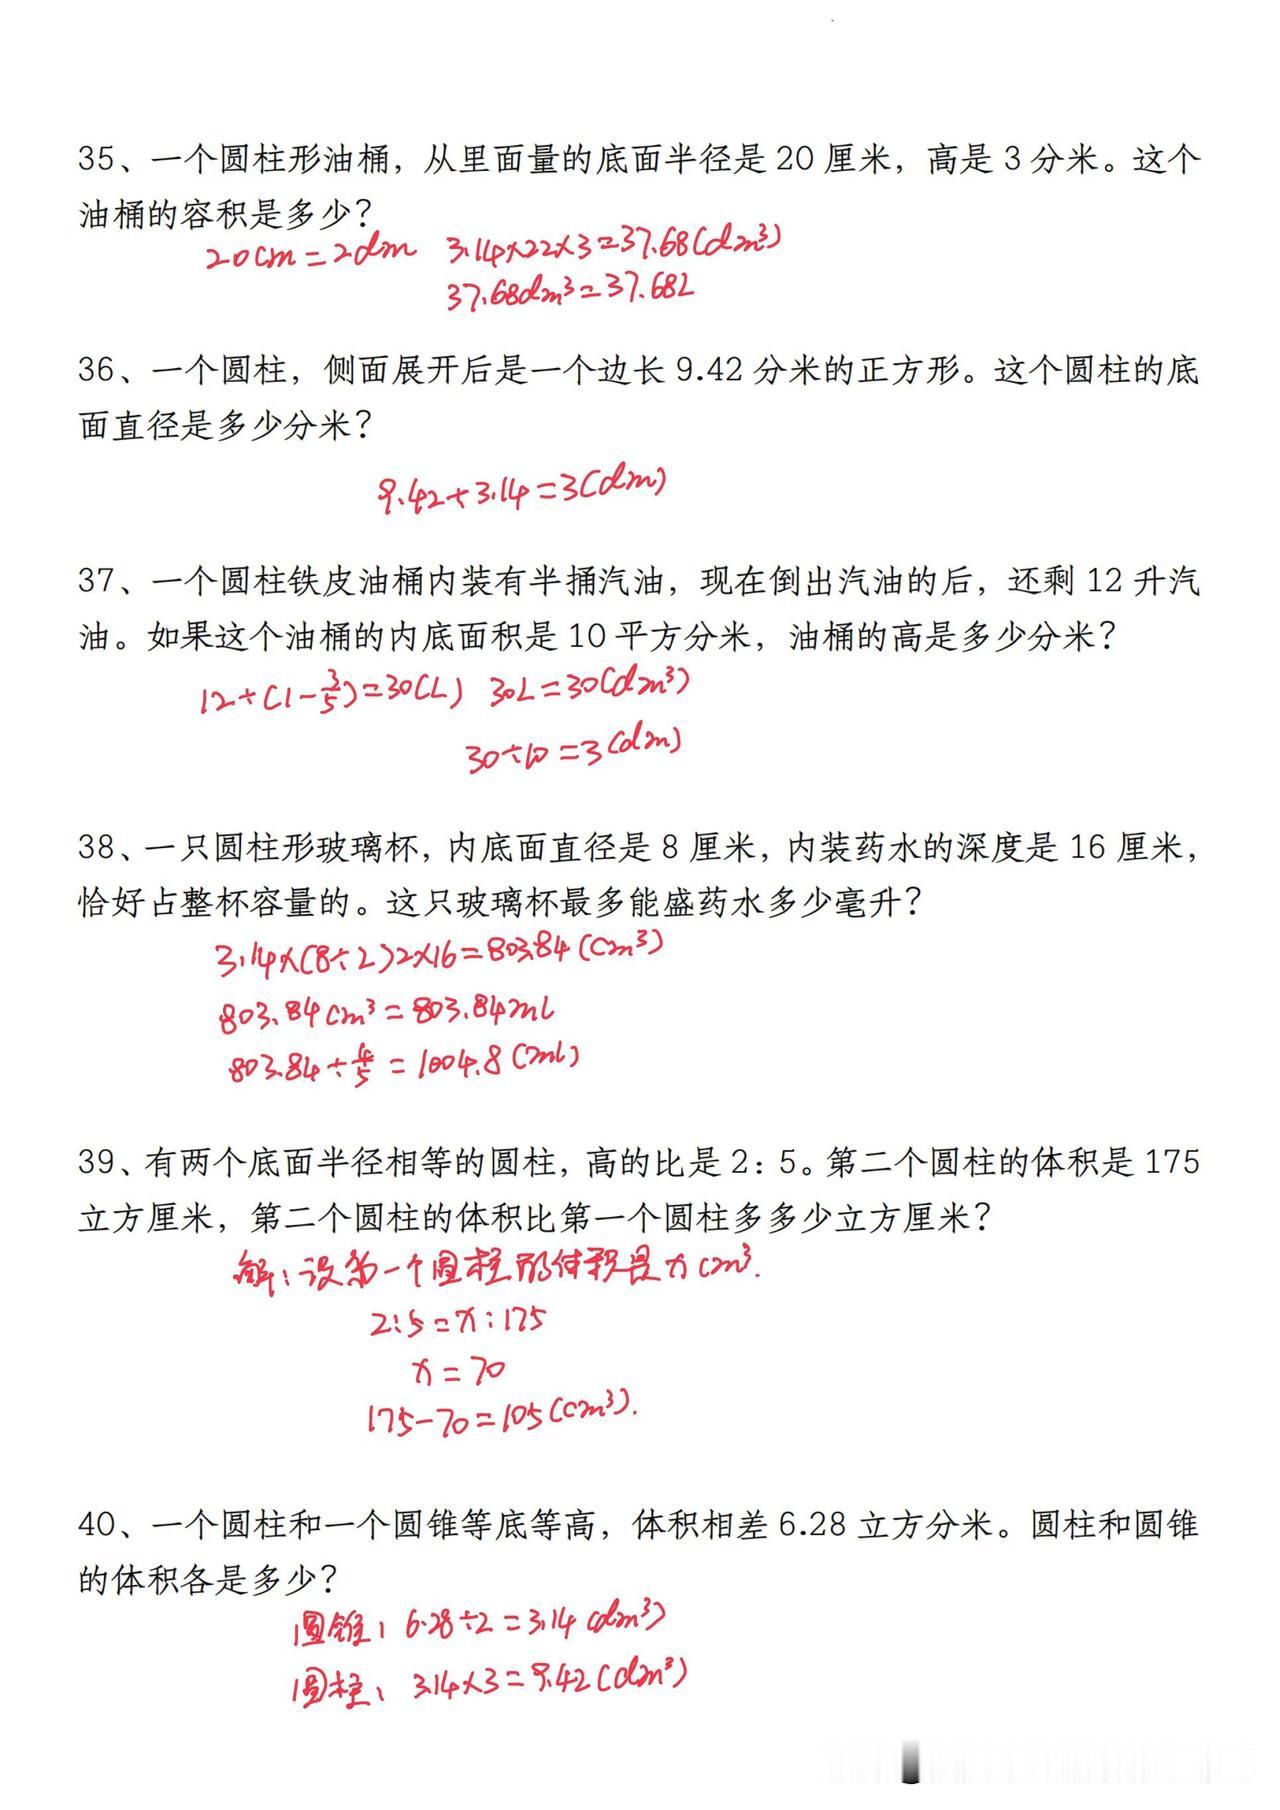 35、一个圆柱形油桶，从里面量的底面半径是 20 厘米，高是 3 分米。这个
油桶的容积是多少？
20cm=2dm 3.14×22×3=37.68(dm³)
37.68dm³=37.68L
36、一个圆柱，侧面展开后是一个边长 9.42 分米的正方形。这个圆柱的底
面直径是多少分米？
9.42÷3.14=3(dm)
37、一个圆柱铁皮油桶内装有半捅汽油，现在倒出汽油的后，还剩 12 升汽
油。如果这个油桶的内底面积是 10 平方分米，油桶的高是多少分米？
12÷(1-3/5)=30(L) 30L=30(dm³)
30÷10=3(dm)
38、一只圆柱形玻璃杯，内底面直径是 8 厘米，内装药水的深度是 16 厘米，
恰好占整杯容量的。这只玻璃杯最多能盛药水多少毫升？
3.14×(8÷2)2×16=803.84(cm³)
803.84cm³=803.84mL
803.84÷4/5=1004.8(mL)
39、有两个底面半径相等的圆柱，高的比是 2：5。第二个圆柱的体积是 175
立方厘米，第二个圆柱的体积比第一个圆柱多多少立方厘米？
解：设第一个圆柱的体积是xcm³.
2:5=x:175
x=70
175-70=105(cm³).
40、一个圆柱和一个圆锥等底等高，体积相差 6.28 立方分米。圆柱和圆锥
的体积各是多少？
圆锥：6.28÷2=3.14(dm³)
圆柱：3.14×3=9.42(dm³)